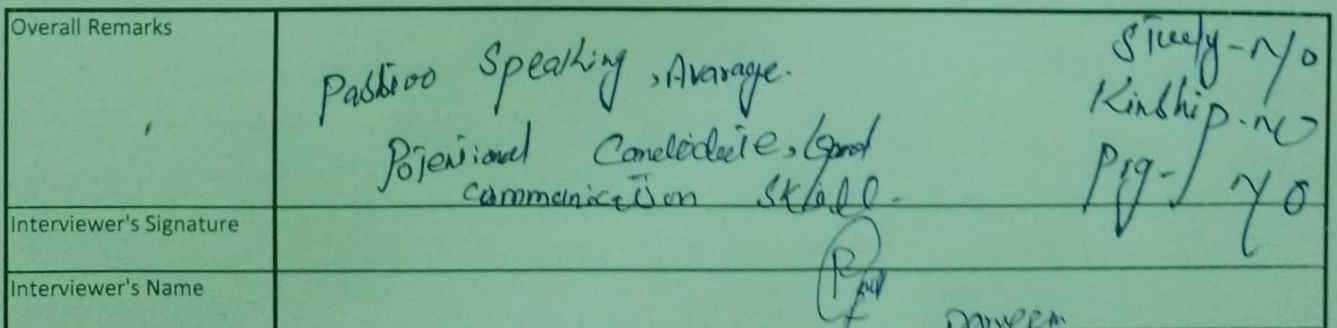 Overall Remarks
Speaking, Avarage.
Potensional Candidate, Good
communication Skill.
Study - No
Kinship - no
Prg - No
Interviewer's Signature
Interviewer's Name